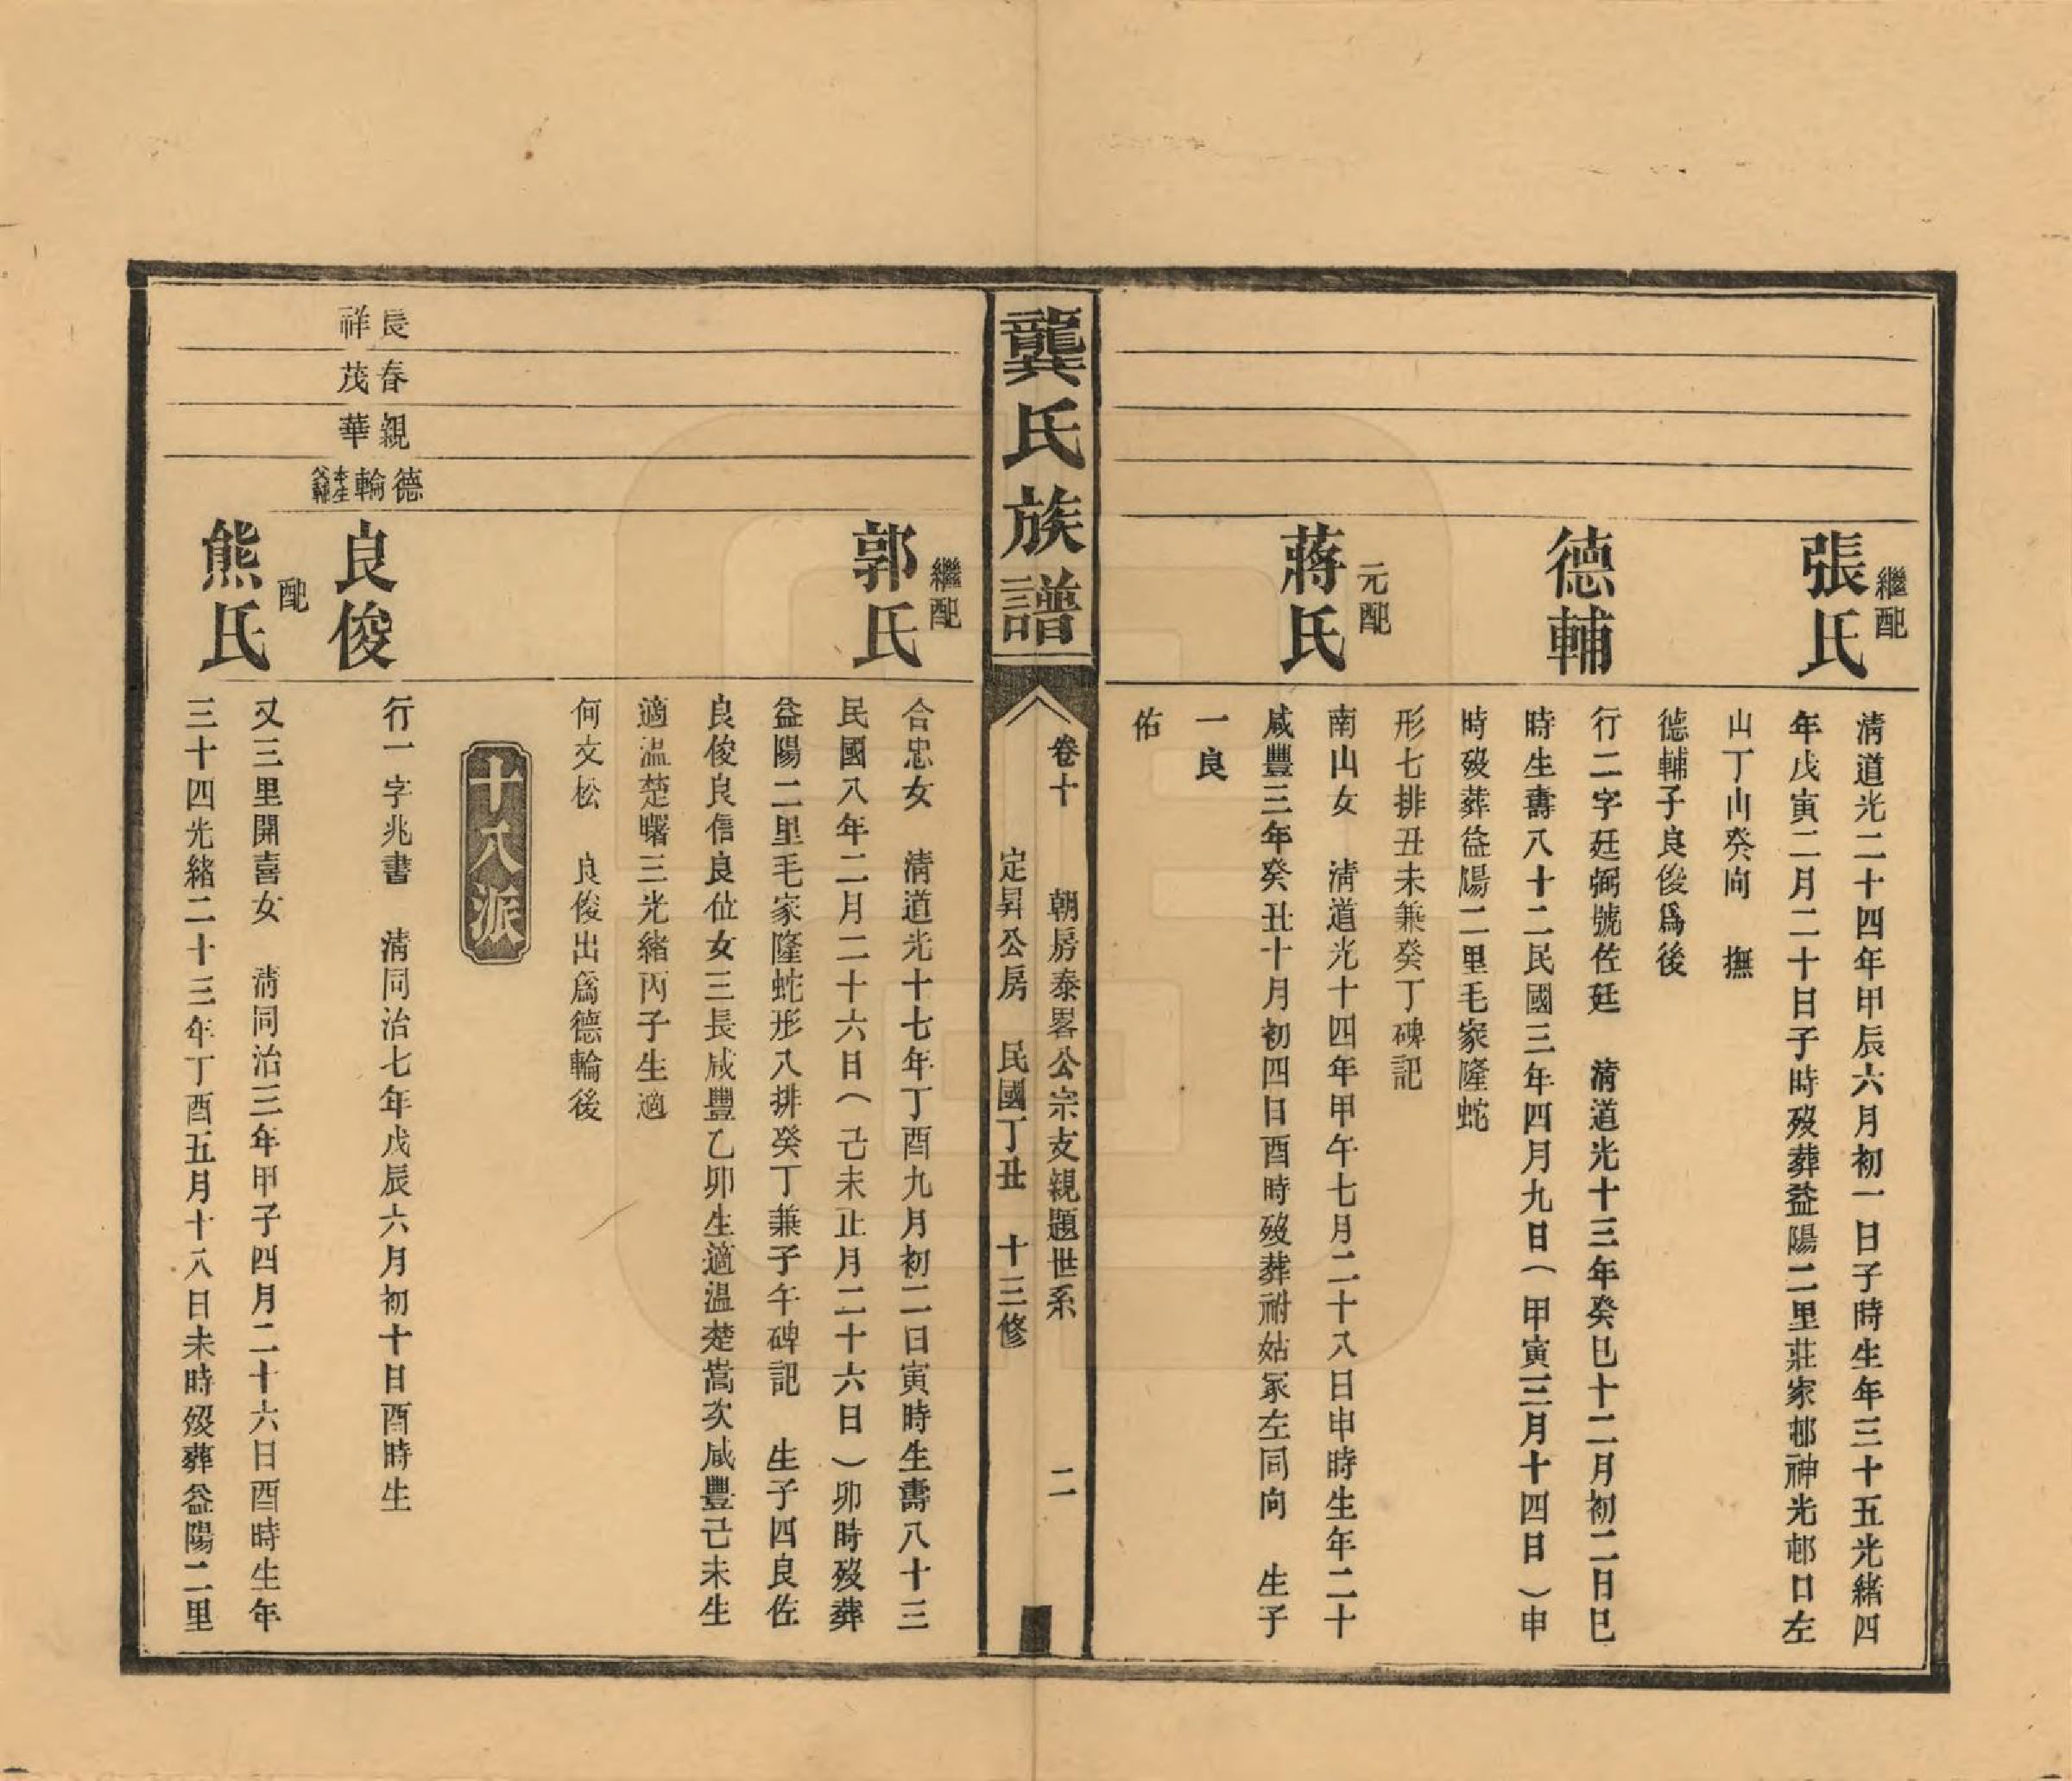 繼配
張氏
清道光二十四年甲辰六月初一日子時生年三十五光緒四
年戊寅二月二十日子時歿葬益陽二里莊家邨神光邨口左
山丁山癸向　撫
德輔子良俊爲後
德輔
行二字廷弼號佐廷　清道光十三年癸巳十二月初二日巳
時生壽八十二民國三年四月九日（甲寅三月十四日）申
時歿葬益陽二里毛家隆蛇
形七排丑未兼癸丁碑記
元配
蔣氏
南山女　清道光十四年甲午七月二十八日申時生年二十
咸豐三年癸丑十月初四日酉時歿葬祔姑冢左同向　生子
一良
佑
龔氏族譜
卷十　朝房泰畧公宗支親題世系　二
定昇公房　民國丁丑　十三修
繼配
郭氏
合忠女　清道光十七年丁酉九月初二日寅時生壽八十三
民國八年二月二十六日（己未止月二十六日）卯時歿葬
益陽二里毛家隆蛇形八排癸丁兼子午碑記　生子四良佐
良俊良信良位女三長咸豐乙卯生適溫楚嵩次咸豐己未生
適溫楚曙三光緒丙子生適
何文松　良俊出爲德輪後
十八派
長春親德
祥茂華輪
本生
父輔
良俊
行一字兆書　清同治七年戊辰六月初十日酉時生
配
熊氏
又三里開喜女　清同治三年甲子四月二十六日酉時生年
三十四光緒二十三年丁酉五月十八日未時歿葬益陽二里